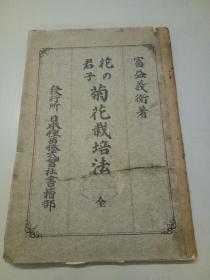 富益義衛著
花の
君子
菊花栽培法
全
發行所 日本種苗株式會社書籍部